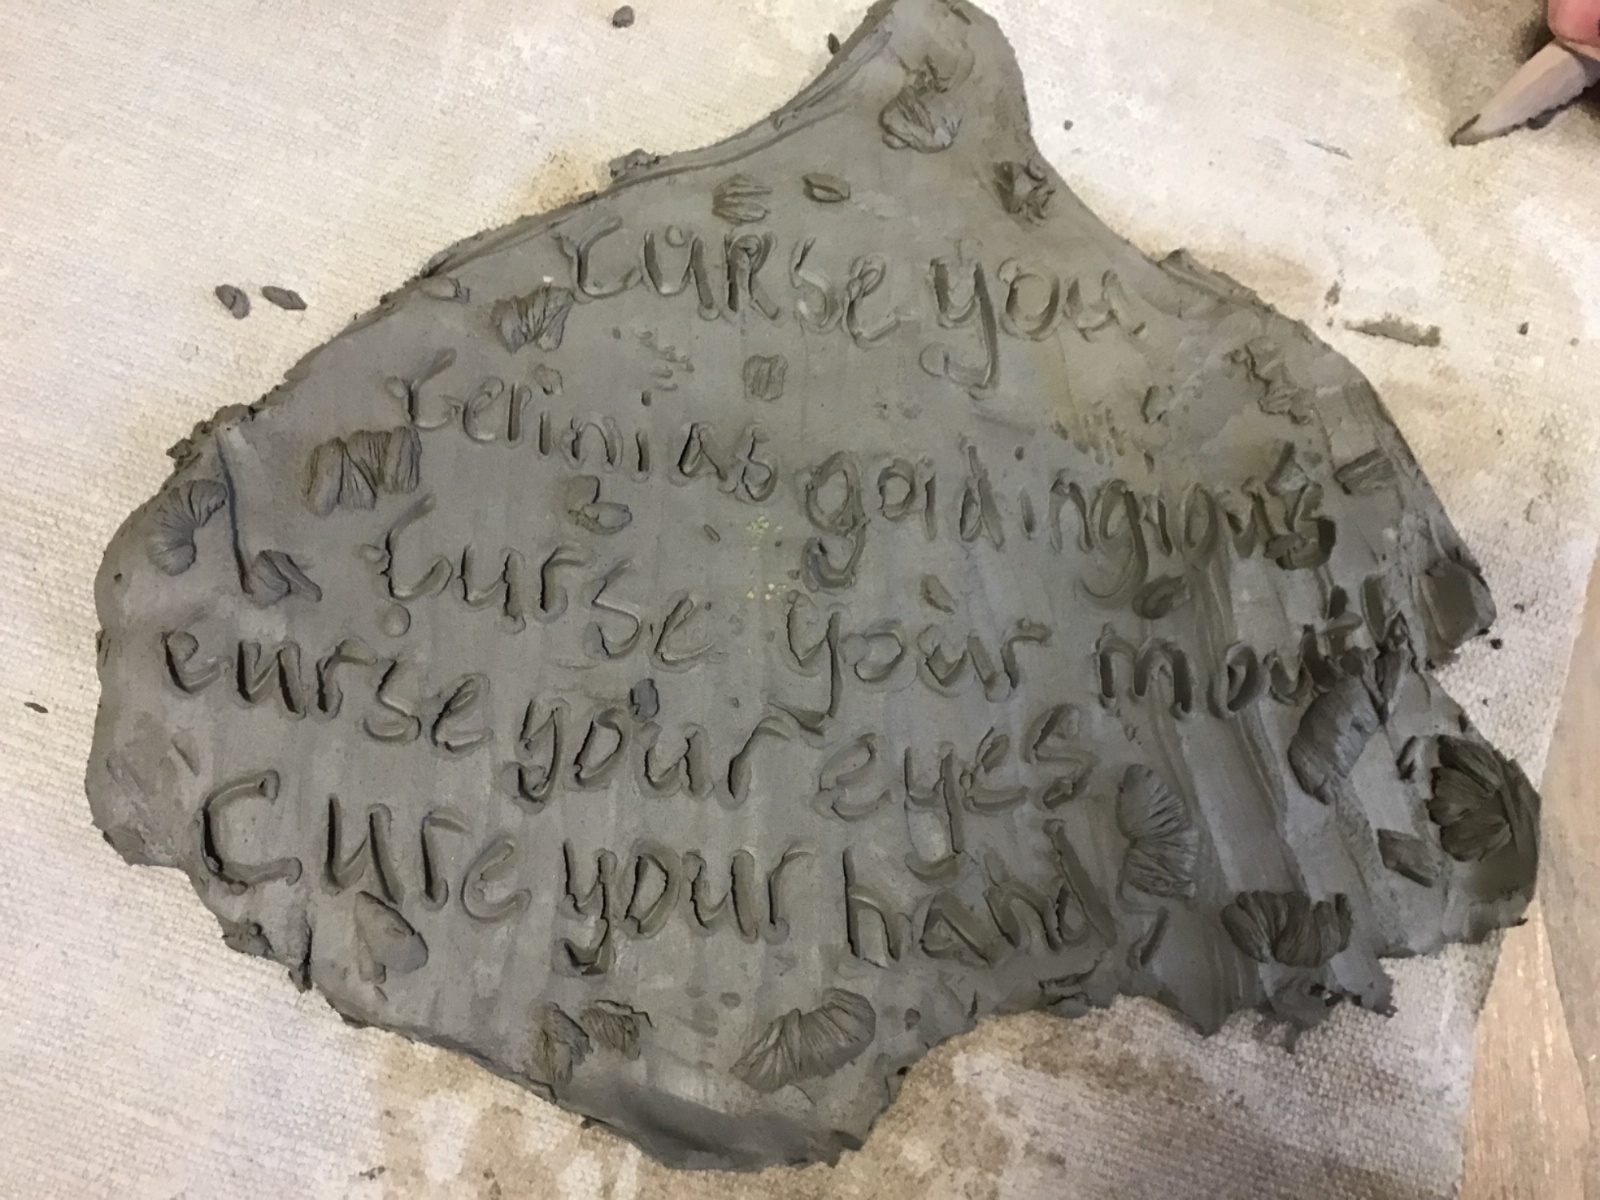 CURse you
Gerinias goldingious
Curse your mouth
curse your eyes
Cure your hand